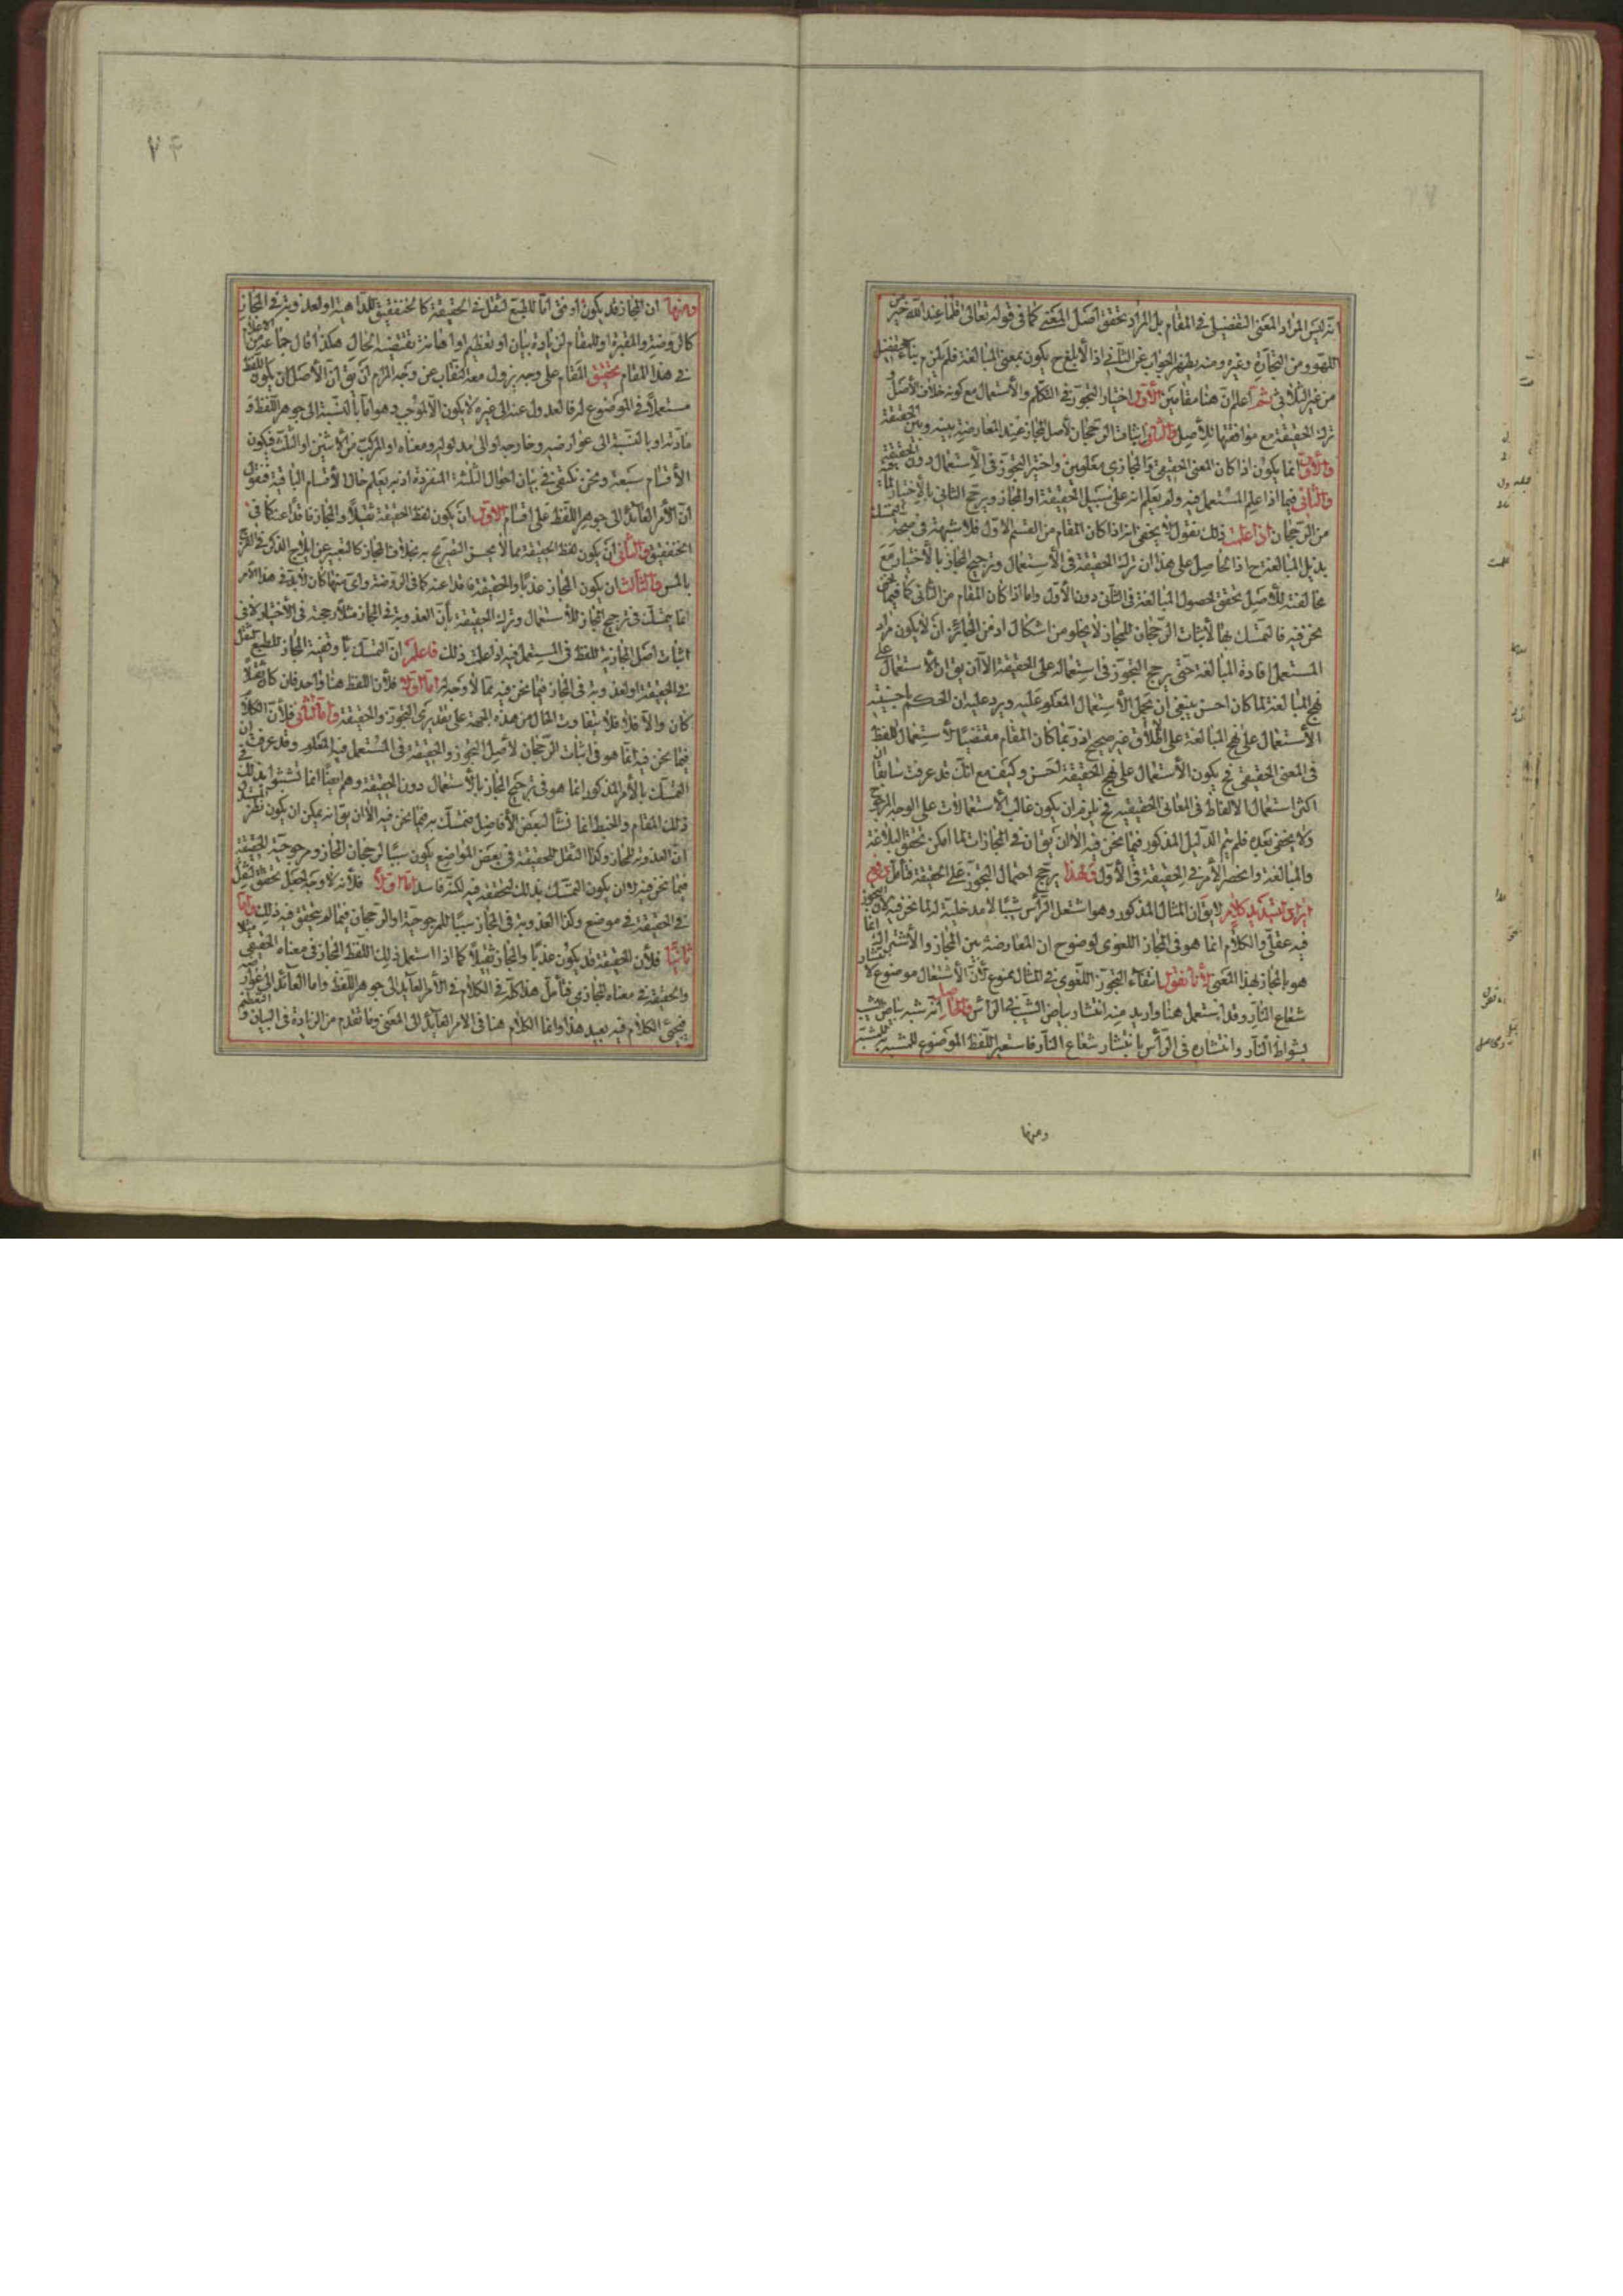 انه ليس المراد المعنى التفضيلى فى المقام بل المراد تحقق اصل المعنى كما فى قوله تعالى قل ما عند الله خير من
اللهو ومن التجارة وغيره ومنه يظهر الجواب عن الثانى اذ الابلغ ح يكون بمعنى المبالغة فلم يلزم بناء التفضيل
من غير الثلاثى ثم اعلم ان هنا مقامين الأول اختيار التجوز فى التكلم والاستعمال مع كونه خلاف الأصل و
ترك الحقيقة مع موافقتها للأصل والثانى اثبات الرجحان لأصل المجاز عند المعارضة بينه وبين الحقيقة
والأول انما يكون اذا كان المعنى الحقيقى والمجازى معلومين واختير التجوز فى الاستعمال دون الحقيقة
والثانى فيما اذا علم المستعمل فيه ولم يعلم انه على سبيل الحقيقة او المجاز ويرجح الثانى بالاختيار لما فيه
من الرجحان اذا علمت ذلك نقول لا يخفى انه اذا كان المقام من القسم الأول فلا شبهة فى صحة التمسك
بذيل المبالغة ح اذ الحاصل على هذا ان ترك الحقيقة فى الاستعمال وترجيح المجاز بالاختيار مع
مخالفته للأصل تحقق لحصول المبالغة فى الثانى دون الأول واما اذا كان المقام من الثانى كما فيما
نحن فيه فالتمسك بها لاثبات الرجحان للمجاز لا يخلو من اشكال اذ من الجائز ان لا يكون مراد
المستعمل افادة المبالغة حتى يرجح التجوز فى استعماله على الحقيقة الا ان يق ان الاستعمال على
نهج المبالغة لما كان احسن ينبغى ان يحمل الاستعمال المعلوم عليه ويرد عليه ان الحكم باحسنية
الاستعمال على نهج المبالغة على الاطلاق غير صحيح اذ ربما كان المقام مقتضيا لاستعمال اللفظ
فى المعنى الحقيقى فح يكون الاستعمال على نهج الحقيقة احسن وكيف مع انك قد عرفت سابقا ان
اكثر استعمال الالفاظ فى المعانى الحقيقيه فح يلزم ان يكون غالب الاستعمالات على الوجه المرجوح
ولا يخفى بعده فلم يتم الدليل المذكور فيما نحن فيه الا ان يق ان فى المجازات لما امكن تحقق البلاغة
والمبالغة وانحصر الأمر فى الحقيقة فى الأول فلهذا يرجح احتمال التجوز على الحقيقة فتأمل
ايراد لتشييد كلام لا يق ان المثال المذكور وهو اشتعل الرأس شيبا لا مدخلية له لما نحن فيه لان التجوز
فيه عقلى والكلام انما هو فى المجاز اللغوى لوضوح ان المعارضة بين المجاز والاشتراك انما
هو بالمجاز بهذا المعنى لأنا نقول انتفاء التجوز اللغوى فى المثال ممنوع لأن الاشتعال موضوع لانتشار
شعاع النار وقد استعمل هنا واريد منه انتشار بياض الشيب فى الرأس والحاصل انه شبه بياض الشيب
بشواظ النار وانتشاره فى الرأس بانتشار شعاع النار فاستعير اللفظ الموضوع للمشبه به للمشبه
ومنها
٢٤
ومنها ان المجاز قد يكون اوفق اما للطبع لثقل فى الحقيقة كالخنفقيق للداهية او لعذوبة فى المجاز
كالروضة والمقبرة او للمقام لزيادة بيان او تعظيم او اهانة يقتضيه الحال هكذا قال جماعة من الاعلام
فى هذا المقام تحقيق المقام على وجه يزول معه النقاب عن وجه المرام ان يق ان الأصل ان يكون اللفظ
مستعملا فى الموضوع له فالعدول عنه الى غيره لا يكون الا لموجب وهو اما بالنسبة الى جوهر اللفظ و
مادته او بالنسبة الى عوارضه وخارجه او الى مدلوله ومعناه او المركب من الاثنين او الثلث فيكون
الأقسام سبعة ونحن نكتفى فى بيان احوال الثلثة المنفردة اذ به يعلم حال الأقسام الباقية فنقول
ان الأمر العائد الى جوهر اللفظ على اقسام الأول ان يكون لفظ الحقيقة ثقيلا والمجاز فاقدا عنه كما فى
الخنفقيق والثانى ان يكون لفظ الحقيقة مما لا يحسن التصريح به بخلاف المجاز كالتعبير عن ايلاج الذكر فى الفرج
بالمس والثالث ان يكون المجاز عذبا والحقيقة فاقدا عنه كما فى الروضة واى منها كان لا بد فى هذا الأمر
انما يتمسك فى ترجيح المجاز للاستعمال وترك الحقيقة بأن العذوبة فى المجاز مثلا رجحته فى الأختيار لا فى
اثبات اصل المجازية للفظ فى المستعمل فيه اذا علمت ذلك فاعلم ان التمسك بأوفقية المجاز للطبع لثقل
فى الحقيقة او لعذوبة فى المجاز فيما نحن فيه مما لا وجه له اما اولا فلأن اللفظ هنا واحد فان كان ثقيلا
كان والا فلا فلا يتفاوت الحال من هذه الجهة على تقديرى التجوز والحقيقة واما الثانى فلأن الكلام
فيما نحن فيه انما هو فى اثبات الرجحان لأصل التجوز والحقيقة فى المستعمل فيه المعلوم وقد عرفت ان
التمسك بالأمر المذكور انما هو فى ترجيح المجاز بالاستعمال دون الحقيقة وهم ايضا انما تشبثوا بذلك فى
ذلك المقام والخبط انما نشأ لبعض الأفاضل فتمسك به فيما نحن فيه الا ان يق انه يمكن ان يكون نظر المستدل
ان العذوبة للمجاز وكذا الثقل للحقيقة فى بعض المواضع يكون سببا لرجحان المجاز ومرجوحية الحقيقة
فيما نحن فيه لا ان يكون التمسك بذلك لتحققه فيه لكنه فاسد اما اولا فلأنه لا وجه لجعل تحقق الثقل
فى الحقيقة فى موضع وكذا العذوبة فى المجاز سببا للمرجوحية او الرجحان فيما لم يتحقق فيه ذلك واما
ثانيا فلأن الحقيقة قد يكون عذبا والمجاز ثقيلا كما اذا استعمل ذلك اللفظ المجاز فى معناه الحقيقى
والحقيقة فى معناه المجازى فتأمل هذا كله فى الكلام فى الأمر العايد الى جوهر اللفظ واما العائد الى عوارضه
فيجئ الكلام فيه بعيد هذا وانما الكلام هنا فى الامر العايد الى المعنى وما تقدم من الزيادة فى البيان والتعظيم و